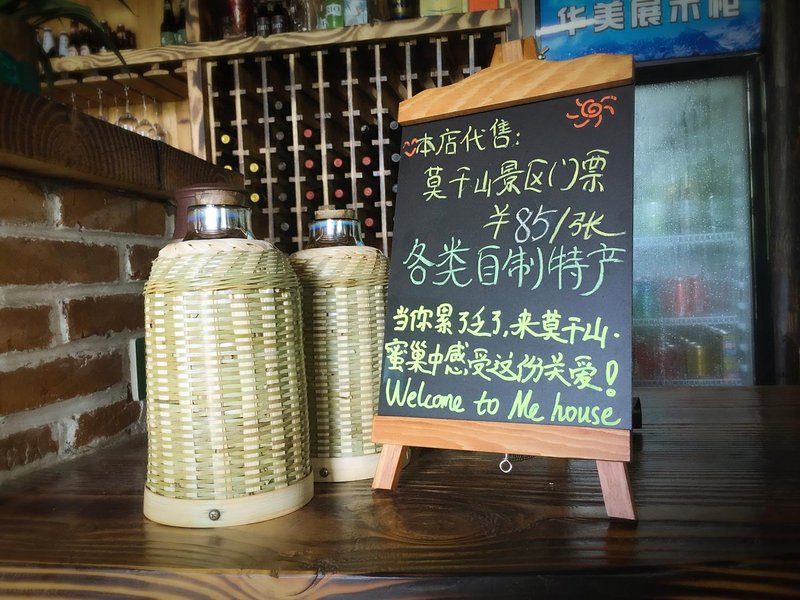 华美展示柜
本店代售:
莫干山景区门票
¥85/张
各类自制特产
当你累了乏了,来莫干山.
蜜巢中感受这份关爱!
Welcome to Me house